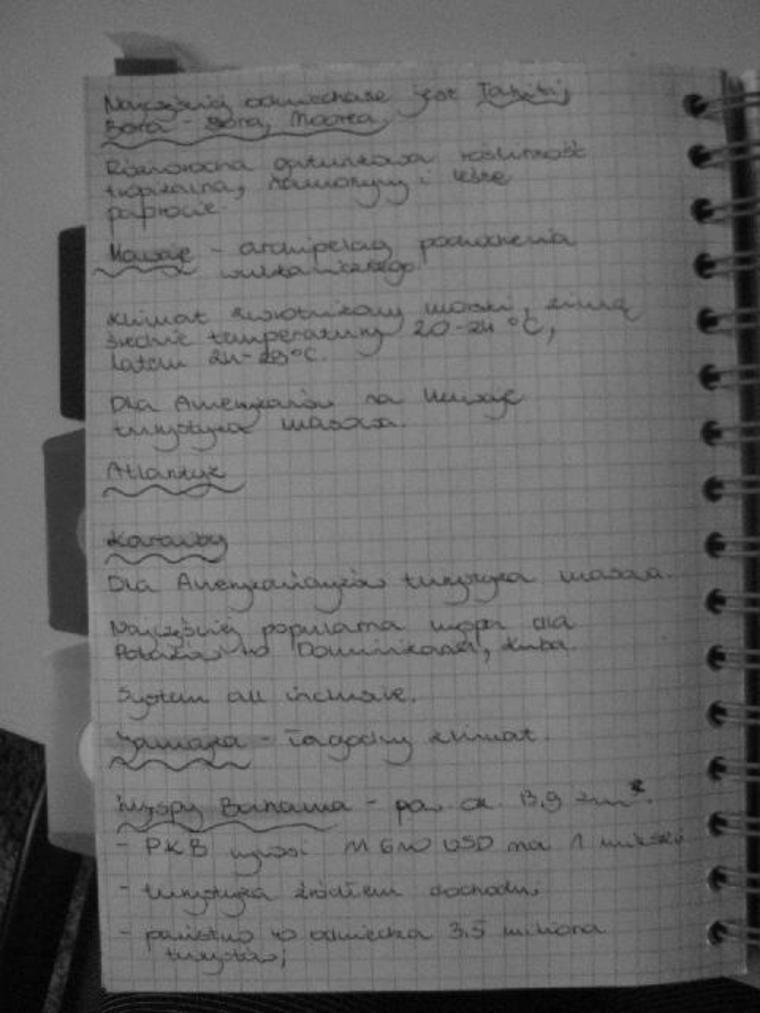 Najczęściej odwiedzane jest Tahiti,
Bora - Bora, Moorea.
Różnorodna gatunkowa roślinność
tropikalna, namorzyny i leśne
paprocie.
Hawaje - archipelag pochodzenia
wulkanicznego.
Klimat zwrotnikowy morski, zimą
średnie temperatury 20-24 °C,
latem 24-28°C.
Dla Amerykanów na Hawaje
turystyka masowa.
Atlantyk
Karaiby
Dla Amerykańczyków turystyka masowa.
Najczęściej popularna wyspa dla
Polaków to Dominikana, Kuba.
System all inclusive.
Jamajka - łagodny klimat.
Wyspy Bahama - pow ok. 13,9 km².
- PKB wynosi USD na 1 mieszk
- turystyka źródłem dochodu,
- państwo to odwiedza 3,5 miliona
turystów,